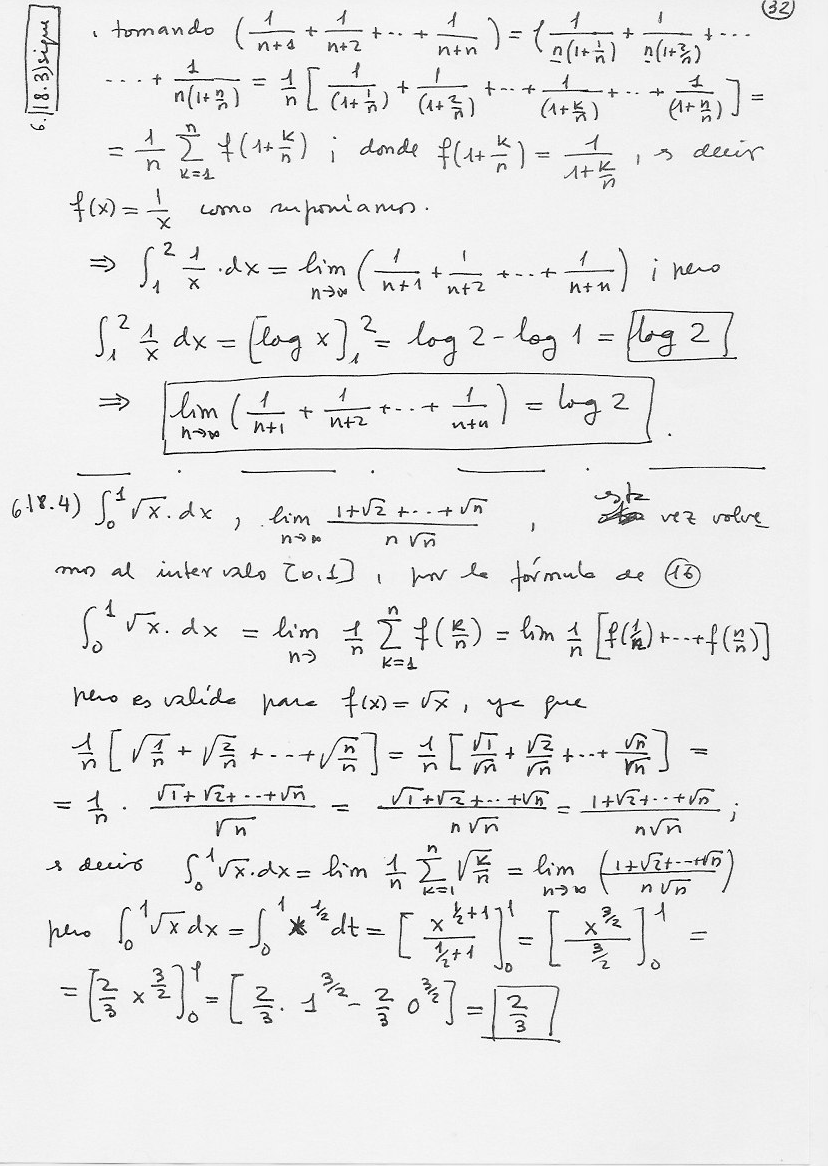 32
6.18.3) sigue
. tomando (1/(n+1) + 1/(n+2) + ... + 1/(n+n)) = (1/(n(1+1/n)) + 1/(n(1+2/n)) + ...
... + 1/(n(1+n/n)) = 1/n [1/(1+1/n) + 1/(1+2/n) + ... + 1/(1+k/n) + ... + 1/(1+n/n)] =
= 1/n ∑_{k=1}^{n} f(1+k/n) ; donde f(1+k/n) = 1/(1+k/n), es decir
f(x) = 1/x como suponíamos.
⇒ ∫_1^2 1/x · dx = lim_{n→∞} (1/(n+1) + 1/(n+2) + ... + 1/(n+n)) ; pero
∫_1^2 1/x dx = [log x]_1^2 = log 2 - log 1 = log 2
⇒ lim_{n→∞} (1/(n+1) + 1/(n+2) + ... + 1/(n+n)) = log 2 .
6.18.4) ∫_0^1 √x · dx , lim_{n→∞} (1+√2+...+√n)/(n√n) , esta vez volve
mos al intervalo [0,1] , por la fórmula de 16
∫_0^1 √x · dx = lim_{n→} 1/n ∑_{k=1}^{n} f(k/n) = lim 1/n [f(1/n)+...+f(n/n)]
pero es valida para f(x) = √x , ya que
1/n [√(1/n) + √(2/n) + ... + √(n/n)] = 1/n [√1/√n + √2/√n + ... + √n/√n] =
= 1/n · (√1+√2+...+√n)/√n = (√1+√2+...+√n)/(n√n) = (1+√2+...+√n)/(n√n) ;
es decir ∫_0^1 √x · dx = lim 1/n ∑_{k=1}^{n} √(k/n) = lim_{n→∞} ((1+√2+...+√n)/(n√n))
pero ∫_0^1 √x dx = ∫_0^1 x^{1/2} dt = [x^{1/2+1}/(1/2+1)]_0^1 = [x^{3/2}/(3/2)]_0^1 =
= [2/3 x^{3/2}]_0^1 = [2/3 · 1^{3/2} - 2/3 0^{3/2}] = 2/3